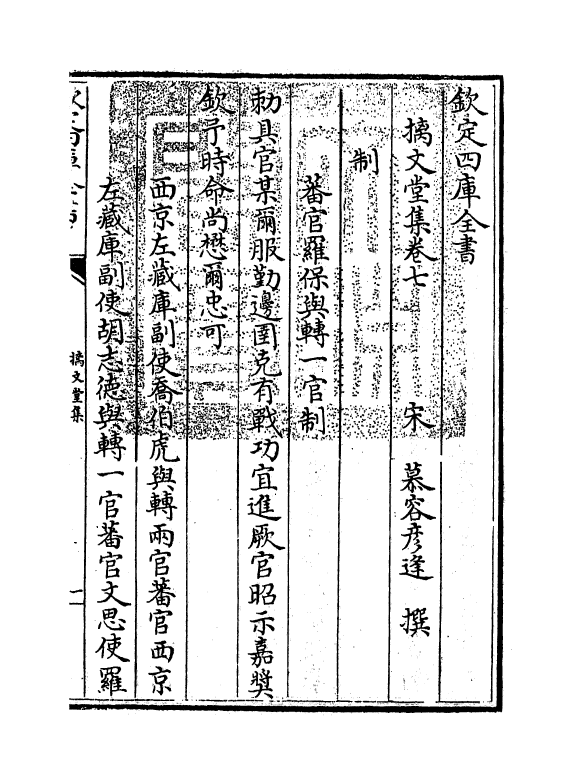 欽定四庫全書
摛文堂集卷七　　宋　慕容彦逢　撰
制
蕃官羅保與轉一官制
勅具官某爾服勤邊圉克有戰功宜進厥官昭示嘉奬
欽予時命尚懋爾忠可
西京左藏庫副使喬伯虎與轉兩官蕃官西京
左藏庫副使胡志德與轉一官蕃官文思使羅
摛文堂集
一